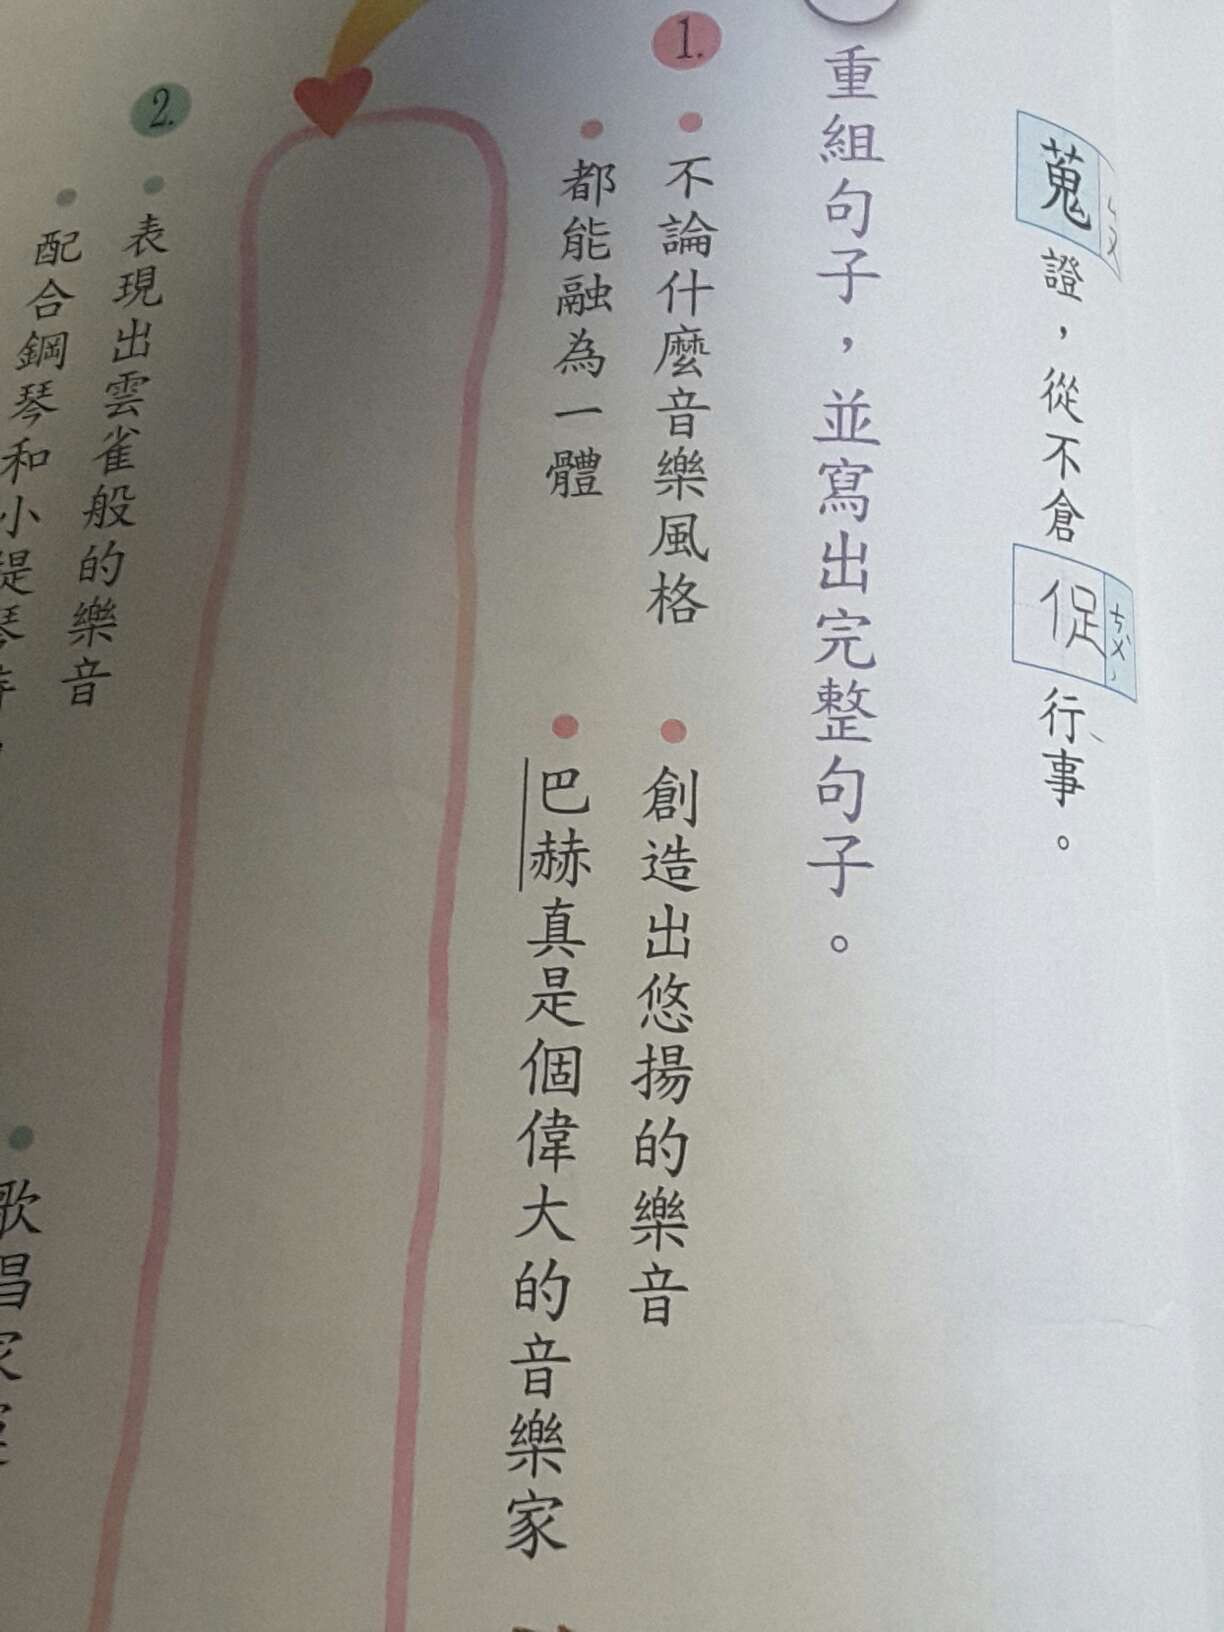 蒐ㄙㄡ證，從不倉促ㄘㄨˋ行事。
重組句子，並寫出完整句子。
1.
•不論什麼音樂風格
•創造出悠揚的樂音
•都能融為一體
•巴赫真是個偉大的音樂家
2.
•表現出雲雀般的樂音
•配合鋼琴和小提琴
•歌唱家